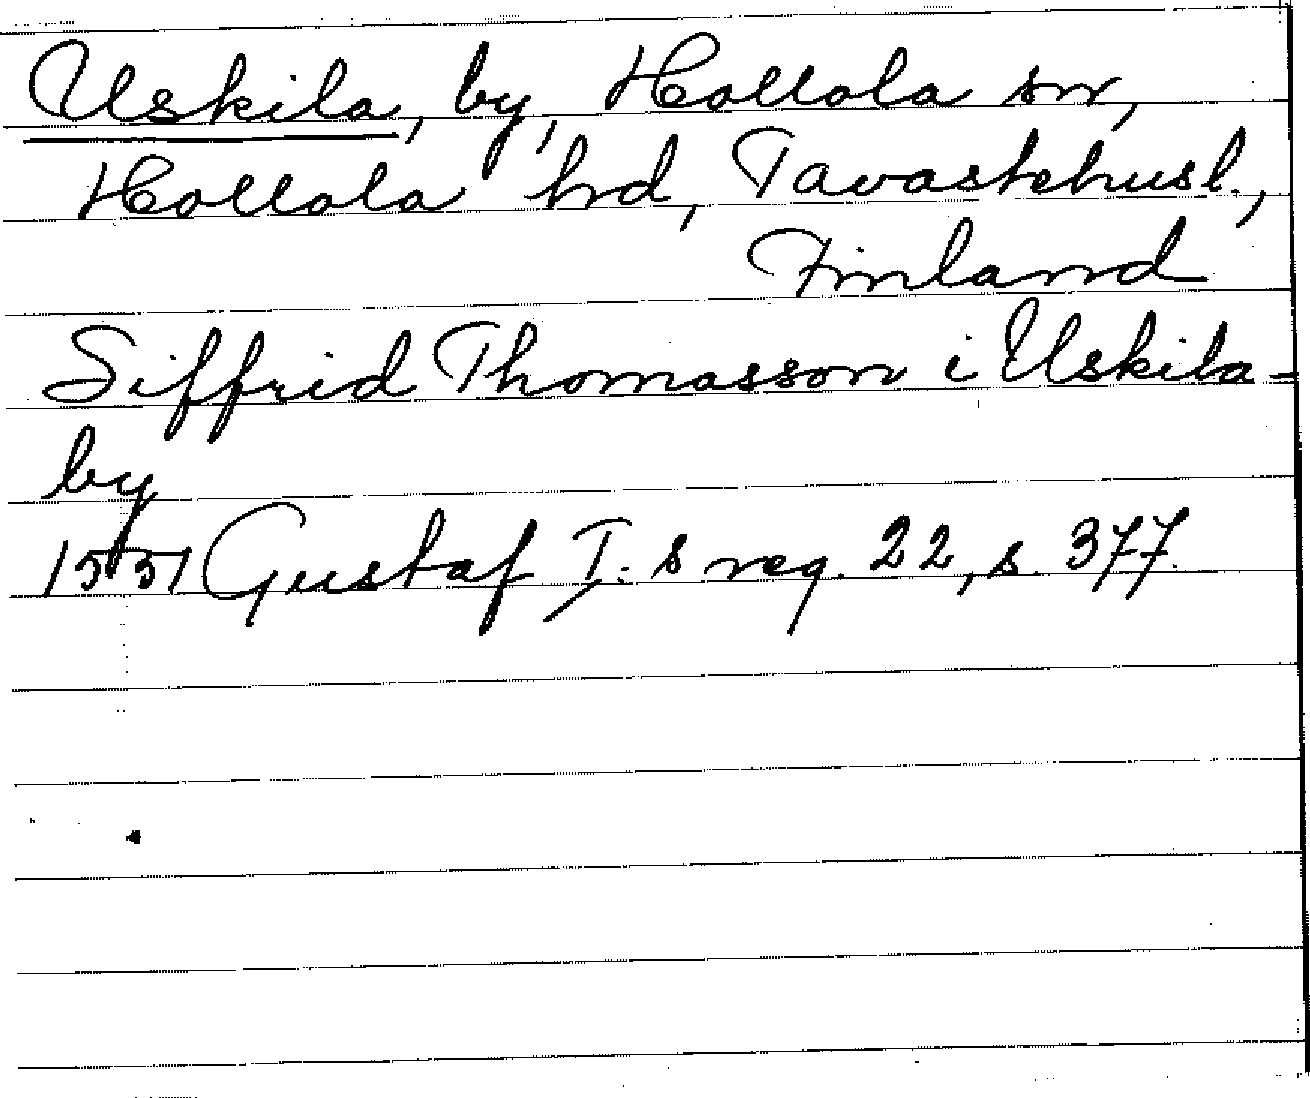 Uskila, by, Hollola sn,
Hollola hrd, Tavastehusl.,
Finland
Siffrid Thomasson i Uskila-
by
1551 Gustaf I:s reg. 22, s. 377.